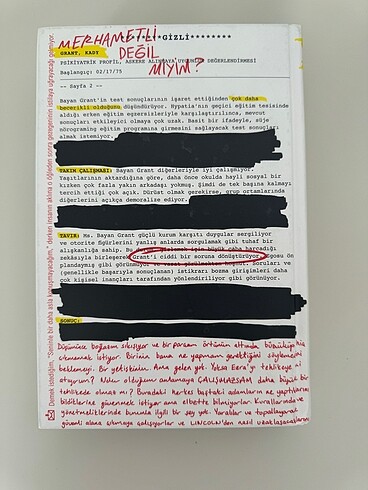 MERHAMETLİ
DEĞİL
MİYİM?
*****GİZLİ********
GRANT, KADY
PSİKİYATRİK PROFİL, ASKERE ALINMAYA UYGUNLUK DEĞERLENDİRMESİ
Başlangıç: 02/17/75
-- Sayfa 2 --
Bayan Grant'in test sonuçlarının işaret ettiğinden çok daha
becerikli olduğunu düşündürüyor. Hypatia'nın geçici eğitim tesisinde
aldığı erken eğitim egzersizleriyle karşılaştırılınca, mevcut
sonuçları etkileyici olmaya çok uzak. Basit bir ifadeyle, süje
nörograming eğitim programına girmesini sağlayacak test sonuçları
almak istemiyor.
TAKIM ÇALIŞMASI: Bayan Grant diğerleriyle iyi çalışmıyor.
Yaşıtlarının aktardığına göre, daha önce okulda hayli sosyal bir
kızken çok fazla yakın arkadaşı yokmuş. Şimdi de tek başına kalmayı
tercih ettiği çok açık. Dürüst olmak gerekirse, grup ortamlarında
diğerlerini açıkça demoralize ediyor.
TAVIR: Ms. Bayan Grant güçlü kurum karşıtı duygular sergiliyor
ve otorite figürlerini yanlış anlarda sorgulamak gibi tuhaf bir
alışkanlığa sahip. Bu
zekâsıyla birleşerek Grant'i ciddi bir soruna dönüştürüyor. Egosu ön
plandaymış gibi görünmüyor
(genellikle başarıyla sonuçlanan) istikrarı bozma girişimleri daha
çok kişisel inançları tarafından yönlendiriliyor gibi görünüyor.
SONUÇ:
Düşününce boğazım sıkışıyor ve bir parçam örtünün altında büzülüp
çıkmamak istiyor. Birinin bana ne yapmam gerektiğini söylemesini
beklemeyi. Bir yetişkinin. Ama gelen yok. Yoksa Ezra'yı tehlikeye mi
atıyorum? Neler olduğunu anlamaya ÇALIŞMAZSAM daha büyük bir
tehlikede olmaz mı? Buradaki herkes baştaki adamların ne yaptıklarını
bildiklerine güvenmek istiyor ama elbette bilmiyorlar. Kurallarında ve
yönetmeliklerinde bununla ilgili bir şey yok. Yaralılar ve toparlayarak
güvenli alana çıkmaya çalışıyorlar ve LINCOLN'den nasıl uzaklaşacaklarını
Demek istediğim, "Seninle bir daha asla konuşmayacağım," derken insanın aklına o öğleden sonra gezegeninin istilaya uğrayacağı gelmiyor.